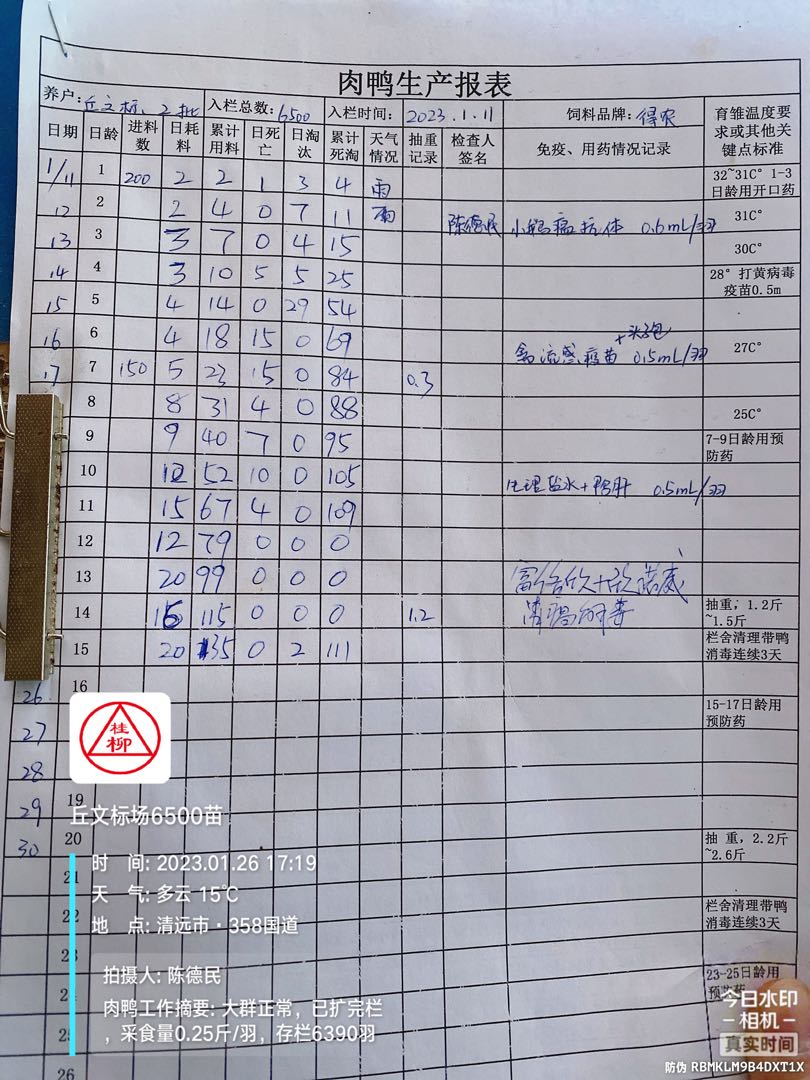 肉鸭生产报表
养户: 丘文标、2批 入栏总数: 6500 入栏时间: 2023.1.11 饲料品牌: 得农 育雏温度要求或其他关键点标准
日期 日龄 进料数 日耗料 累计用料 日死亡 日淘汰 累计死淘 天气情况 抽重记录 检查人签名 免疫、用药情况记录
1/11 1 200 2 2 1 3 4 雨 32~31C° 1-3日龄用开口药
12 2 2 4 0 7 11 雨 陈德民 小鸭瘟抗体 0.6mL/羽 31C°
13 3 3 7 0 4 15 30C°
14 4 3 10 5 5 25 28° 打黄病毒疫苗0.5m
15 5 4 14 0 29 54
16 6 4 18 15 0 69 禽流感疫苗 0.5mL/羽 27C°
17 7 150 5 23 15 0 84 0.3
8 8 31 4 0 88 25C°
9 9 40 7 0 95 7-9日龄用预防药
10 12 52 10 0 105 生理盐水+鸭肝 0.5mL/羽
11 15 67 4 0 109
12 12 79 0 0 0
13 20 99 0 0 0
14 16 115 0 0 0 1.2 抽重，1.2斤~1.5斤
15 20 135 0 2 111 栏舍清理带鸭消毒连续3天
26 16
27 15-17日龄用预防药
28
29 19
30 20 抽 重，2.2斤~2.6斤
21
22 栏舍清理带鸭消毒连续3天
23
24 23-25日龄用
25
26
桂柳
丘文标场6500苗
时 间: 2023.01.26 17:19
天 气: 多云 15℃
地 点: 清远市·358国道
拍摄人: 陈德民
肉鸭工作摘要: 大群正常，已扩完栏
，采食量0.25斤/羽，存栏6390羽
今日水印
-相机-
真实时间
防伪 RBMKLM9B4DXT1X